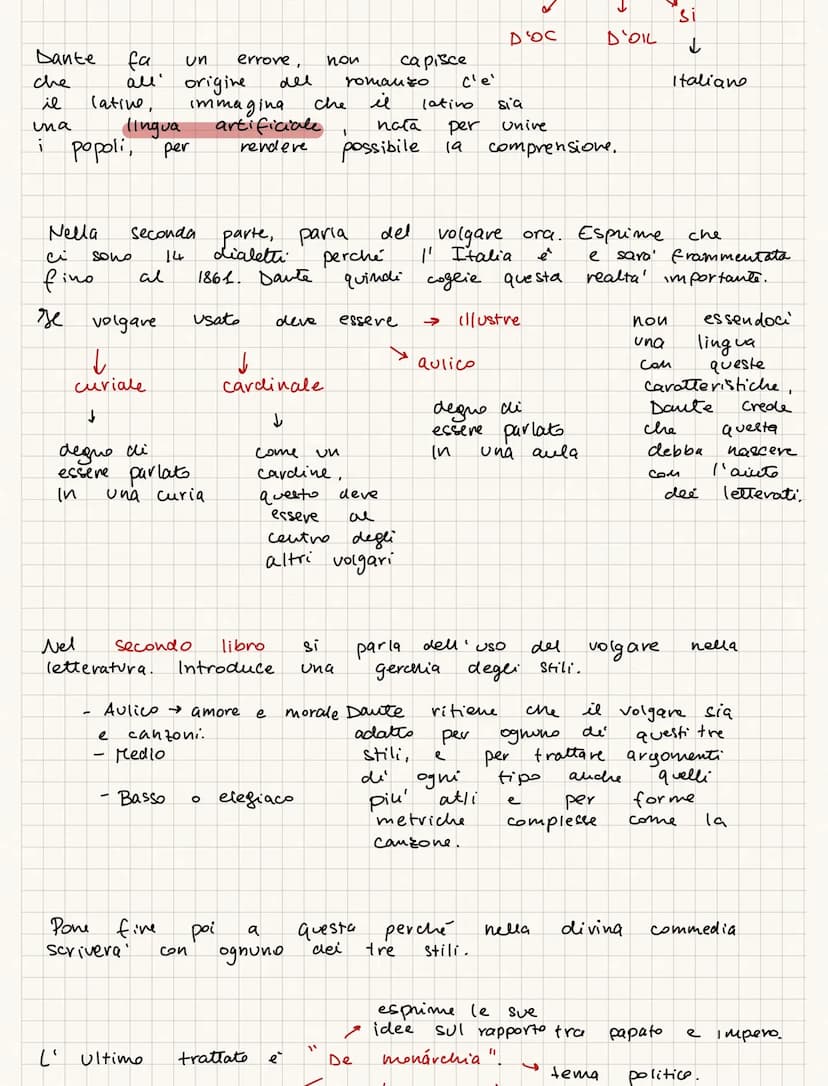 si
D'OC D'OIL
Italiano
Dante fa un errore, non capisce
che all' origine del romanzo c'e'
il latino, immagina che il latino sia
una lingua artificiale, nata per unire
i popoli, per rendere possibile la comprensione.
Nella seconda parte, parla del volgare ora. Esprime che
ci sono 14 dialetti perché l' Italia è e sara' frammentata
fino al 1861. Dante quindi coglie questa realta' importante.
Il volgare usato deve essere → illustre
aulico
curiale cardinale
degno di
essere parlato
in una curia
come un
cardine,
questo deve
essere al
centro degli
altri volgari
degno di
essere parlato
in una aula
non essendoci
una lingua
con queste
caratteristiche,
Dante crede
che questa
debba nascere
con l'aiuto
dei letterati.
Nel secondo libro si parla dell'uso del volgare nella
letteratura. Introduce una gerchia degli stili.
- Aulico → amore e morale
e canzoni.
- Medio
- Basso o elegiaco
Dante ritiene che il volgare sia
adatto per ognuno di' questi tre
stili, e per trattare argomenti
di' ogni tipo anche quelli
piu' atli e per forme
metriche complesse come la
canzone.
Pone fine poi a questa perché nella divina commedia
scrivera' con ognuno dei tre stili.
esprime le sue
idee sul rapporto tra papato e impero.
L' ultimo trattato e' "De monárchia".
tema politico.